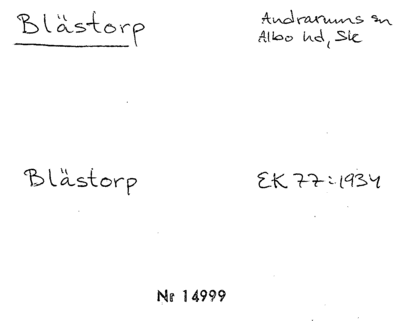 Blästorp
Andrarums sn
Albo hd, Sk
Blästorp
EK 77:1934
Nr 14999